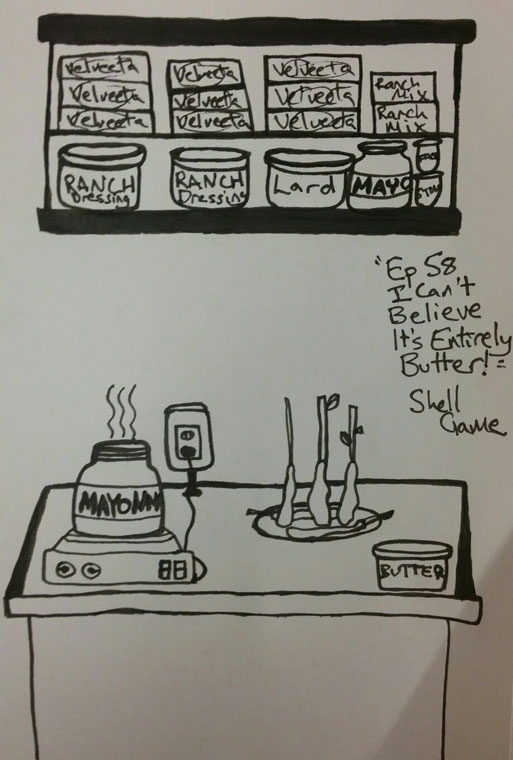 Velveeta Velveeta Velveeta
Velveeta Velveeta Velveeta Ranch Mix
Velveeta Velveeta Velveeta Ranch Mix
RANCH Dressing
RANCH Dressing
Lard
MAYO
"Ep 58
I Can't
Believe
It's Entirely
Butter!"
Shell
Game
MAYONN
BUTTER